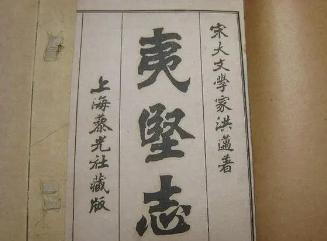 宋大文學家洪邁著
夷堅志
上海蔡光社藏版